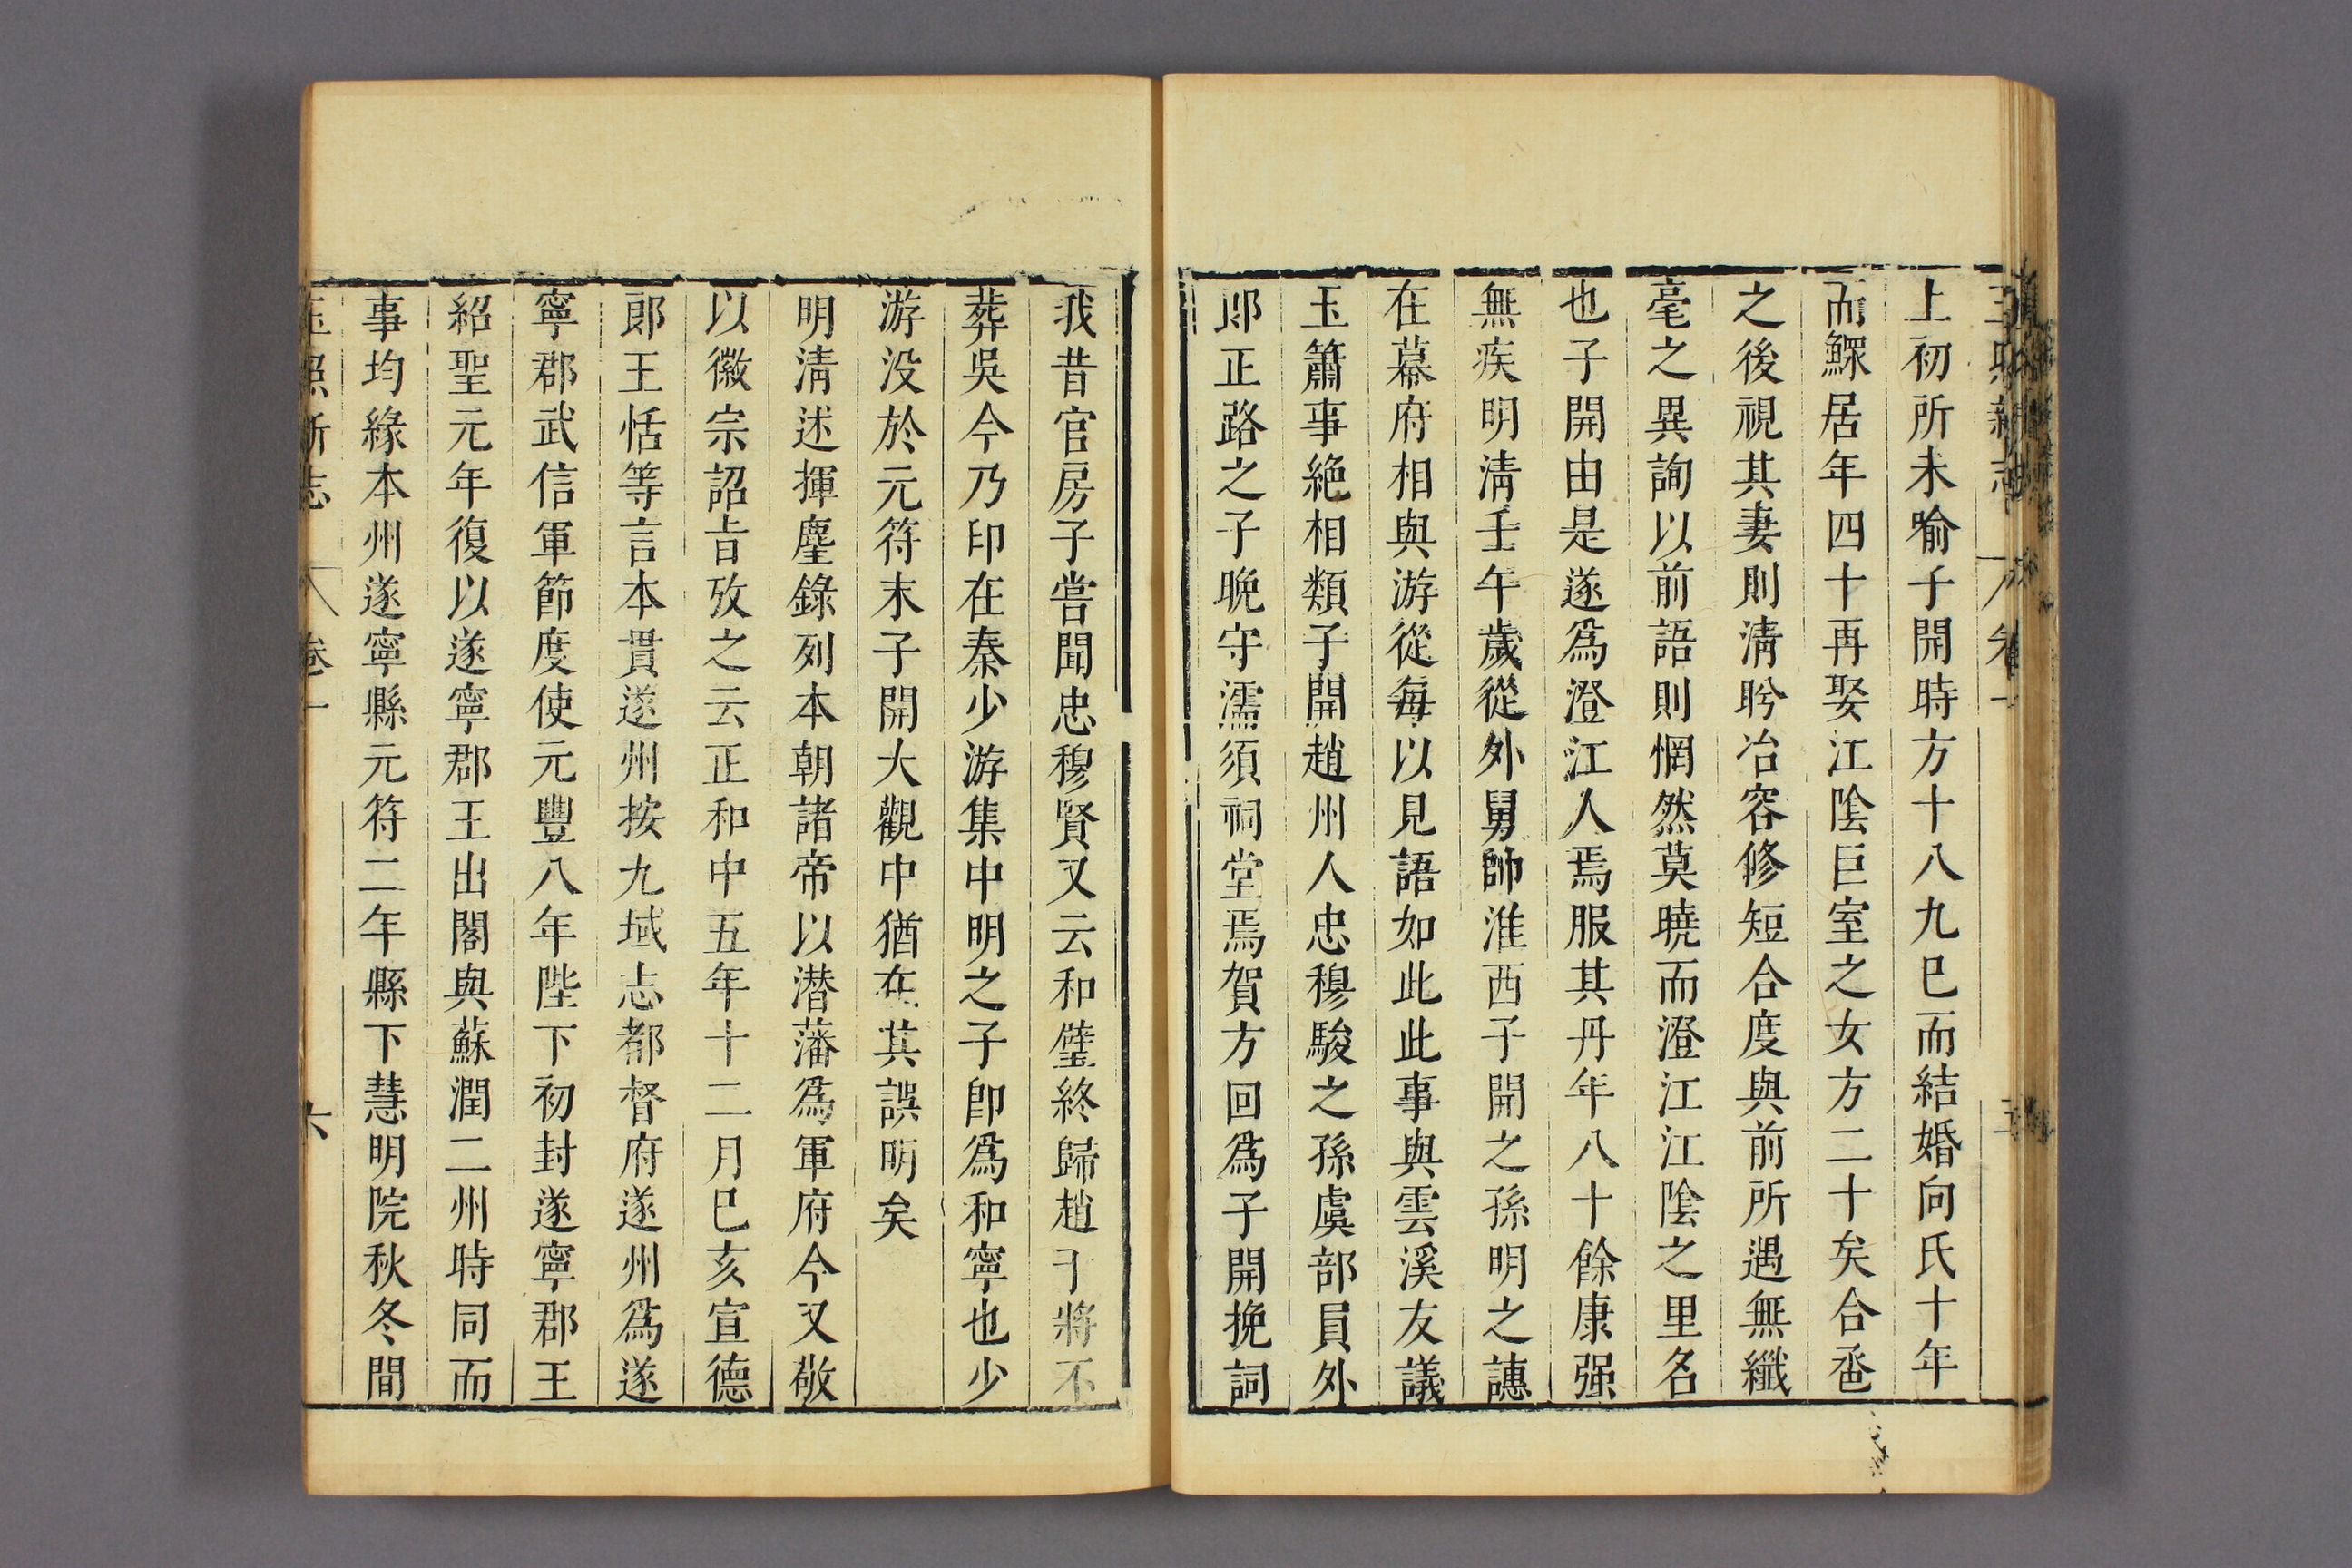 玉照新志 卷一 五
上初所未喻子開時方十八九巳而結婚向氏十年
而鰥居年四十再娶江陰巨室之女方二十矣合巹
之後視其妻則淸盻冶容修短合度與前所遇無纖
毫之異詢以前語則惘然莫曉而澄江江陰之里名
也子開由是遂爲澄江人焉服其丹年八十餘康强
無疾明淸壬午歲從外舅帥淮西子開之孫明之譓
在幕府相與游從每以見語如此此事與雲溪友議
玉簫事絶相類子開趙州人忠穆駿之孫虞部員外
郎正路之子晚守濡須祠堂焉賀方回爲子開挽詞
我昔官房子嘗聞忠穆賢又云和璧終歸趙干將不
葬吳今乃印在秦少游集中明之子卽爲和寧也少
游没於元符末子開大觀中猶在其誤明矣
明淸述揮麈錄列本朝諸帝以潜藩爲軍府今又敬
以徽宗詔旨攷之云正和中五年十二月巳亥宣德
郎王恬等言本貫遂州按九域志都督府遂州爲遂
寧郡武信軍節度使元豐八年陛下初封遂寧郡王
紹聖元年復以遂寧郡王出閣與蘇潤二州時同而
事均緣本州遂寧縣元符二年縣下慧明院秋冬間
玉照新志 卷一 六